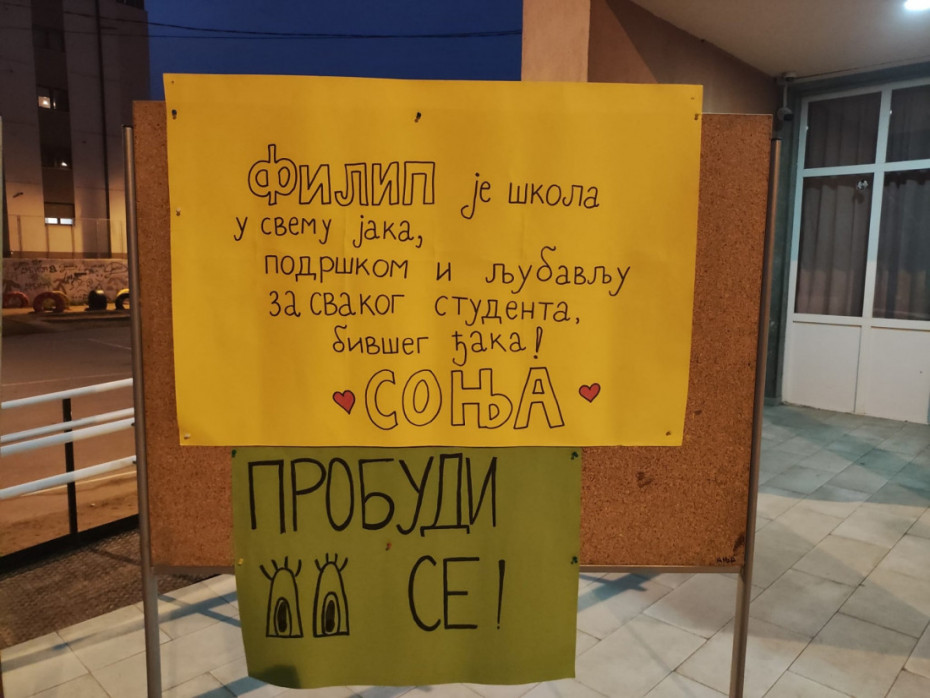 ФИЛИП је школа
у свему јака,
подршком и љубављу
за сваког студента,
бившег ђака!
СОЊА
ПРОБУДИ
СЕ!